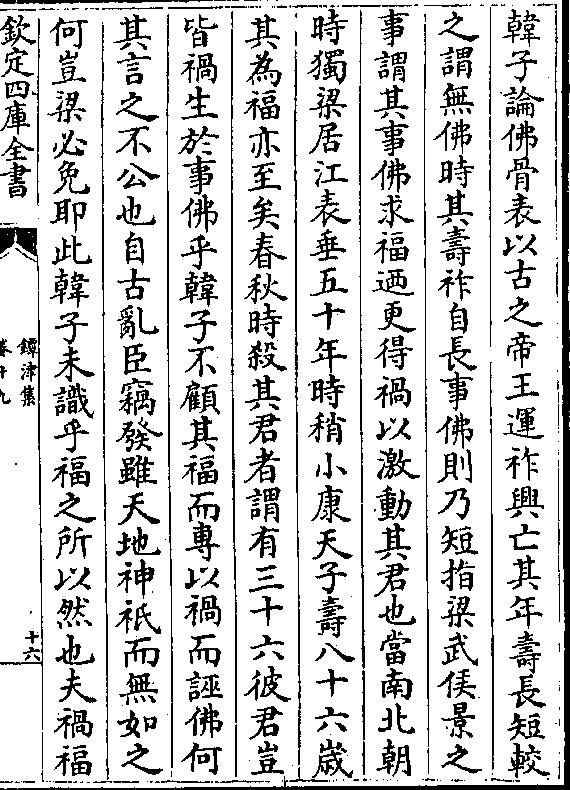 韓子論佛骨表以古之帝王運祚興亡其年壽長短較
之謂無佛時其壽祚自長事佛則乃短指梁武侯景之
事謂其事佛求福廼更得禍以激動其君也當南北朝
時獨梁居江表垂五十年時稍小康天子壽八十六歲
其為福亦至矣春秋時殺其君者謂有三十六彼君豈
皆禍生於事佛乎韓子不顧其福而專以禍而誣佛何
其言之不公也自古亂臣竊發雖天地神祇而無如之
何豈梁必免耶此韓子未識乎福之所以然也夫禍福
欽定四庫全書
鐔津集
卷十九
十六